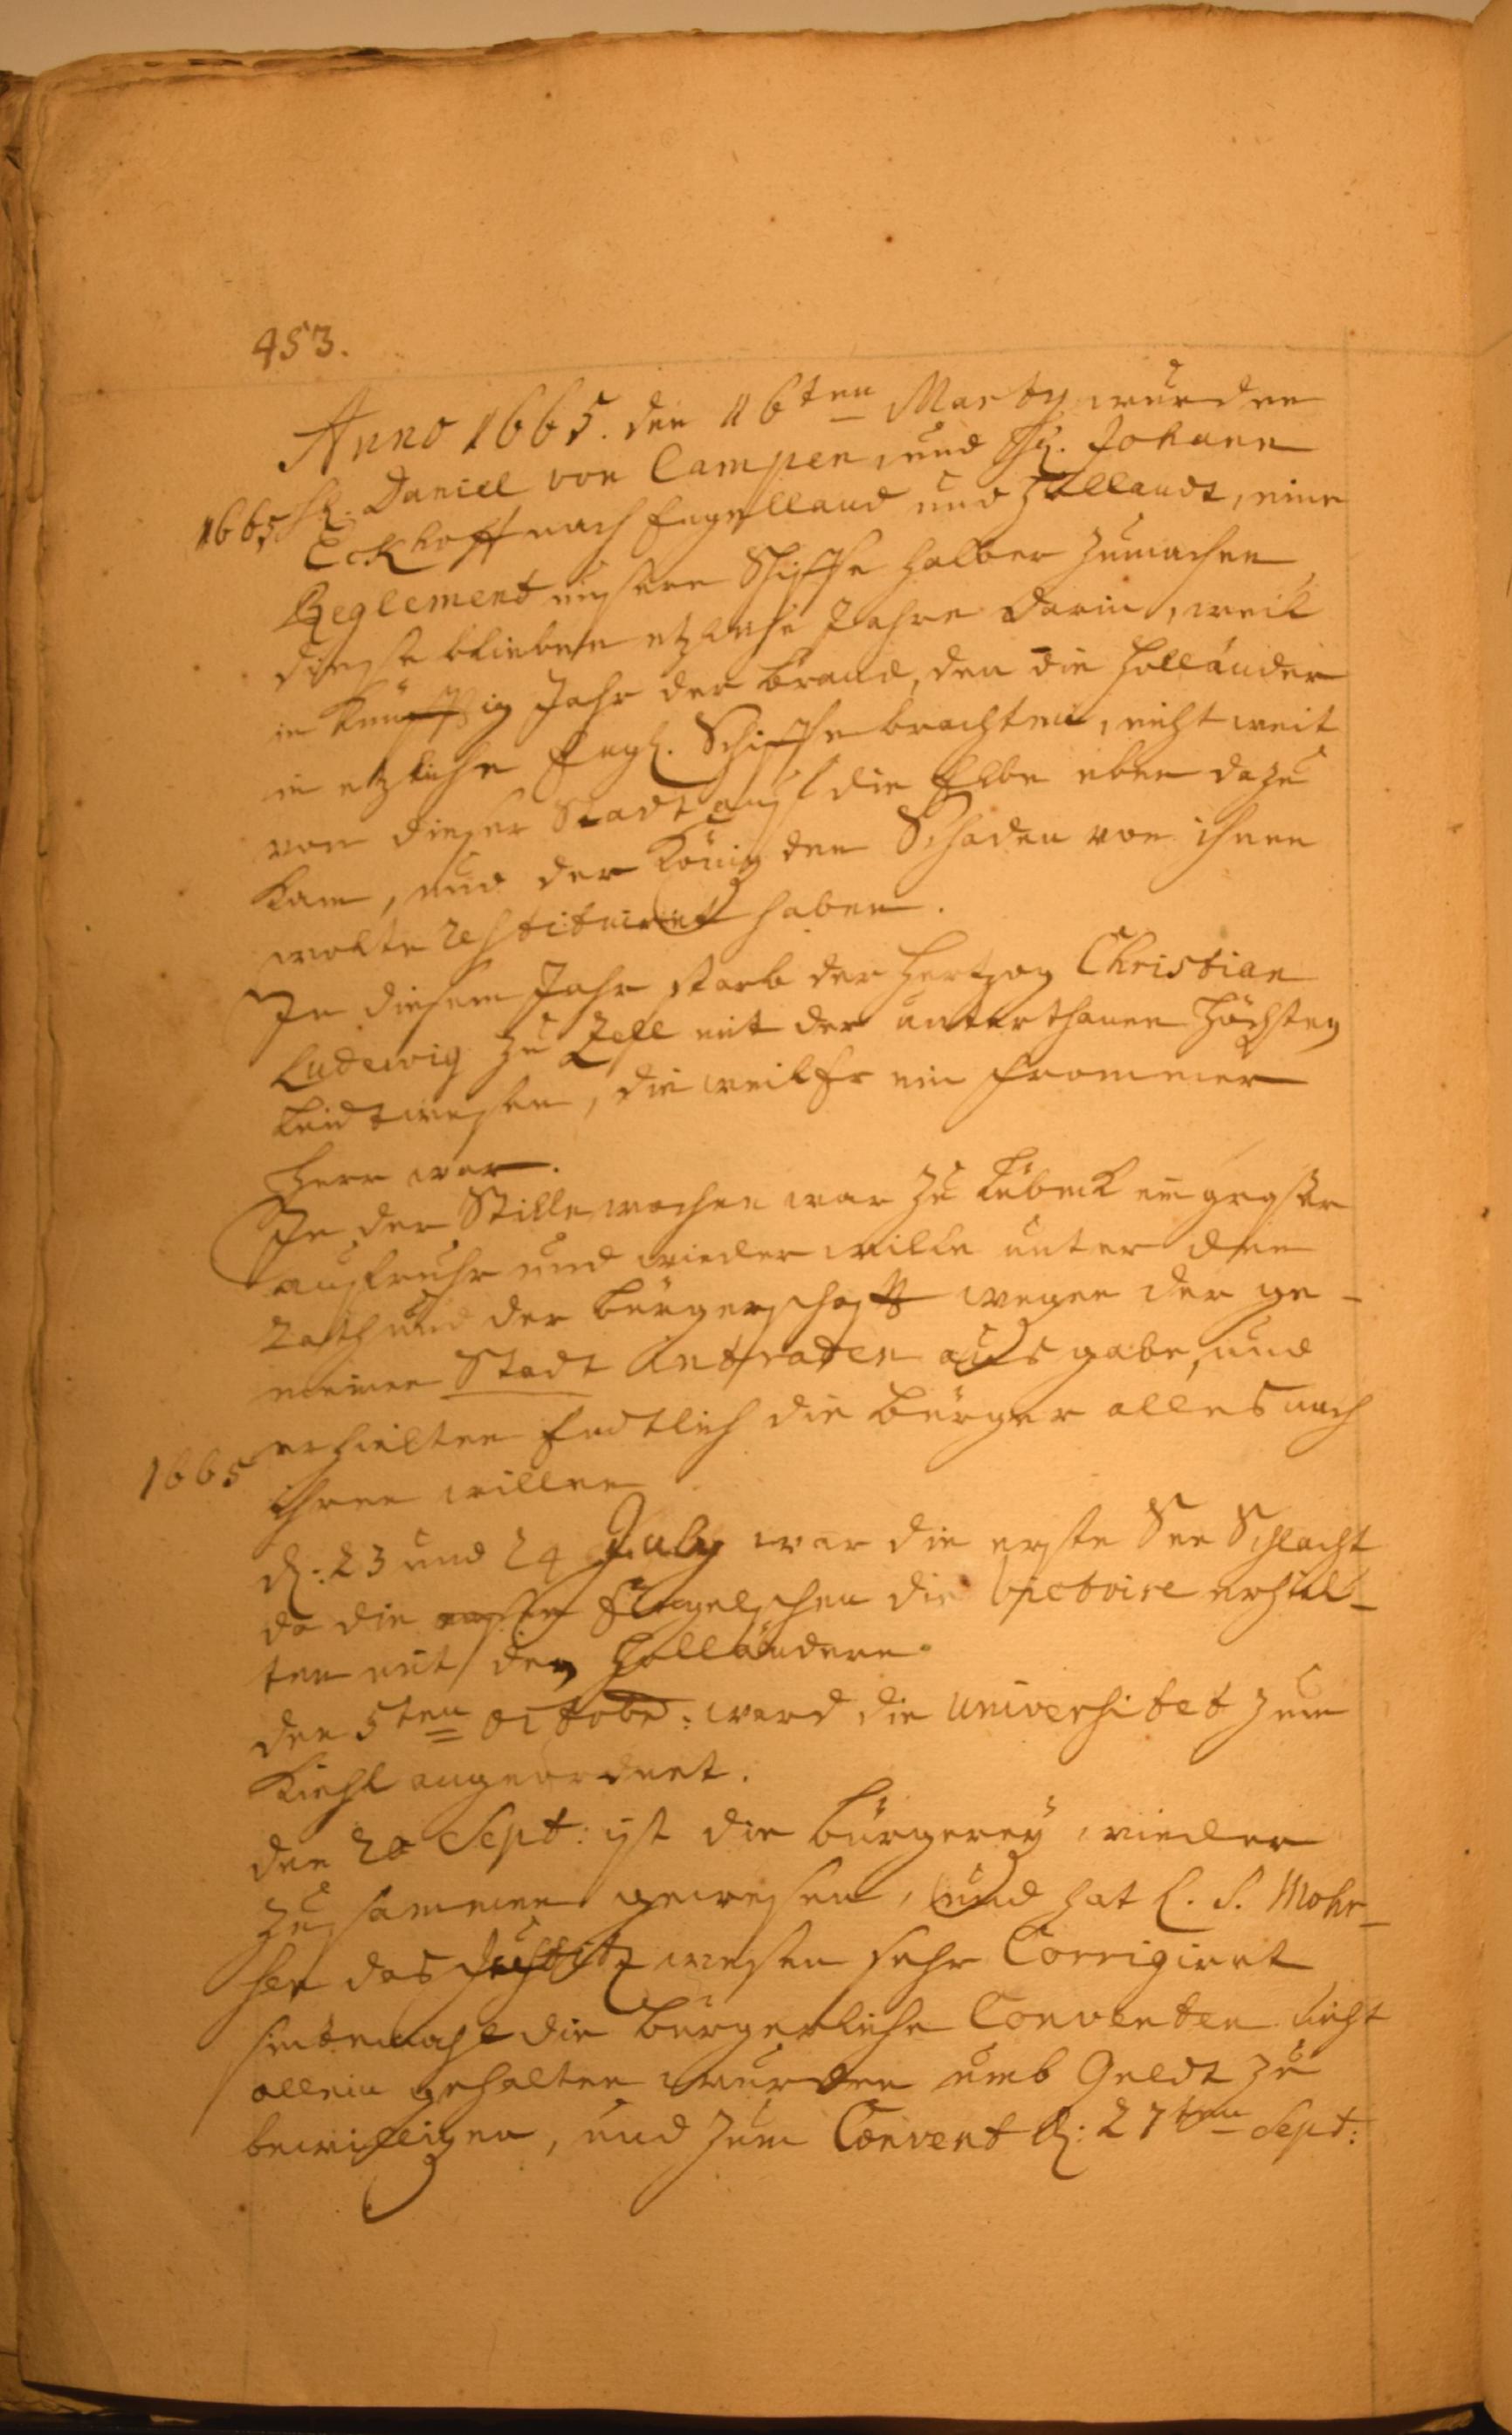 453.
Anno 1665. den 16ten Marty wurden
1665 H: Daniel von Campen und Hr. Johann
Eckhoff nach Engelland und Hollandt, eine
Reglement unsere Schiffe halber zumachen,
diese blieben etzliche Jahre darin, weil
in künfftig Jahr der brand, den die Holländer
in etzliche Engl. Schiffe brachten, nicht weit
von dieser Stadt auf die Elbe eben dazu
kam, und der König den Schaden von ihnen
wolte restituiret haben.
In diesem Jahr starb der Hertzog Christian
Ludewig zu Zell mit der unterthanen Höchsten
Leidtwesen, die weil Er ein frommer
Herr war.
In der Stille wochen war zu Lübeck ein grosser
aufruhr und wieder wille unter den
Rath und der bürgerschafft wegen der ge-
meinen Stadt intraden ausgabe, und
1665 erhielten Endtlich die bürger alles nach
ihren willen
d: 23 und 24 July war die erste See Schlacht
da die Engelschen die victoire erhiel-
ten mit den Holländern
den 5ten Octobr: ward die Universitet zum
Kiehl angeordnet.
den 20 Sept: ist die bürgerey wieder
zusammen gewesen, und hat L. S. Mohr-
sen das Justitz wesen sehr Corrigiret
sintemahl die bürgerliche Conventen nicht
allein gehalten wurden umb Geldt zu
bewilligen, und zum Convent d: 27ten Sept: